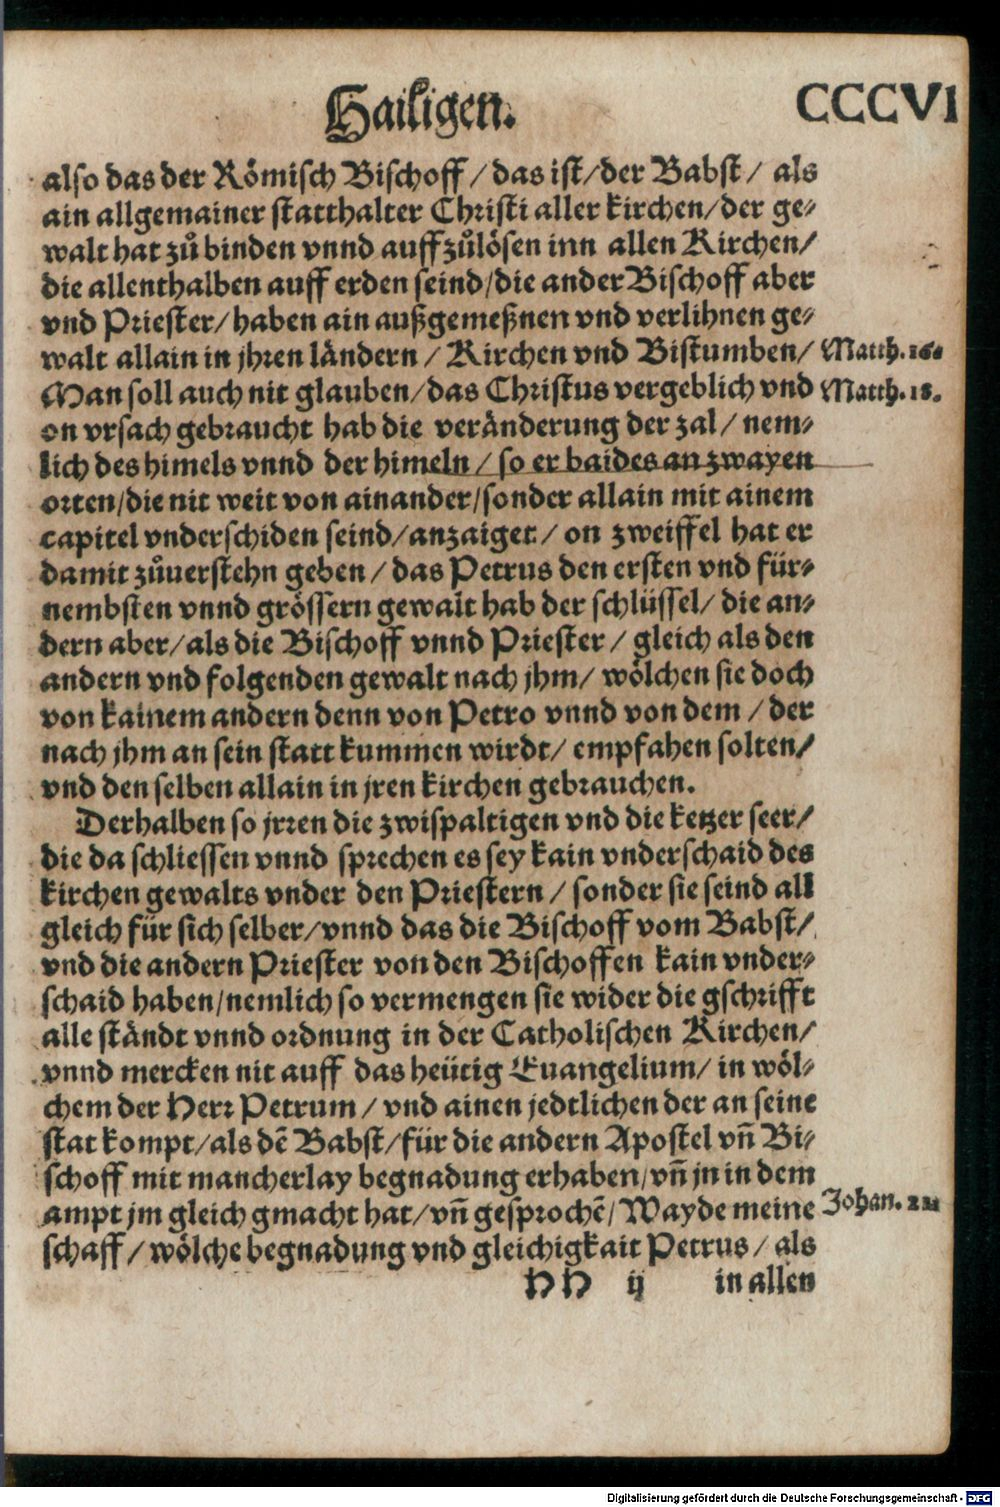 Hailigen. CCCVI
also das der Römisch Bischoff / das ist / der Babst / als
ain allgemainer statthalter Christi aller kirchen / der ge⸗
walt hat zů binden vnnd auffzůlösen inn allen Kirchen /
die allenthalben auff erden seind / die ander Bischoff aber
vnd Priester / haben ain außgemeßnen vnd verlihnen ge⸗
walt allain in jhren ländern / Kirchen vnd Bistumben / Matth. 16.
Man soll auch nit glauben / das Christus vergeblich vnd Matth. 18.
on vrsach gebraucht hab die veränderung der zal / nem⸗
lich des himels vnnd der himeln / so er baides an zwayen
orten / die nit weit von ainander / sonder allain mit ainem
capitel vnderschiden seind / anzaiget / on zweiffel hat er
damit zůuerstehn geben / das Petrus den ersten vnd für⸗
nembsten vnnd grössern gewalt hab der schlüssel / die an⸗
dern aber / als die Bischoff vnnd Priester / gleich als den
andern vnd folgenden gewalt nach jhm / wölchen sie doch
von kainem andern denn von Petro vnnd von dem / der
nach jhm an sein statt kummen wirdt / empfahen solten /
vnd den selben allain in jren kirchen gebrauchen.
Derhalben so jrren die zwispaltigen vnd die ketzer seer /
die da schliessen vnnd sprechen es sey kain vnderschaid des
kirchen gewalts vnder den Priestern / sonder sie seind all
gleich für sich selber / vnnd das die Bischoff vom Babst /
vnd die andern Priester von den Bischoffen kain vnder⸗
schaid haben / nemlich so vermengen sie wider die gschrifft
alle ständt vnnd ordnung in der Catholischen Kirchen /
vnnd mercken nit auff das heütig Euangelium / in wöl⸗
chem der Herr Petrum / vnd ainen jedtlichen der an seine
stat kompt / als dē Babst / für die andern Apostel vñ Bi⸗
schoff mit mancherlay begnadung erhaben / vñ jn in dem
ampt jm gleich gmacht hat / vñ gesprochē / Wayde meine Johan. 21.
schaff / wölche begnadung vnd gleichigkait Petrus / als
HH ij in allen
Digitalisierung gefördert durch die Deutsche Forschungsgemeinschaft - DFG